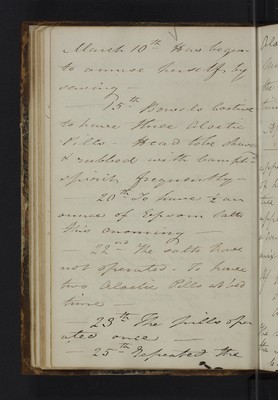 March 10th Has begun
to amuse herself by
sewing —
— 15th Bowels costive
to have three Aloetic
Pills — Head to be shaved
& rubbed with Camphd
spirits frequently —
— 20th To have ½ an
ounce of Epsom Salts
this morning —
— 22nd The salts have
not operated. To have
two Aloetic Pills at bed
time —
— 23th The pills oper
ated once —
— 25th Repeated the